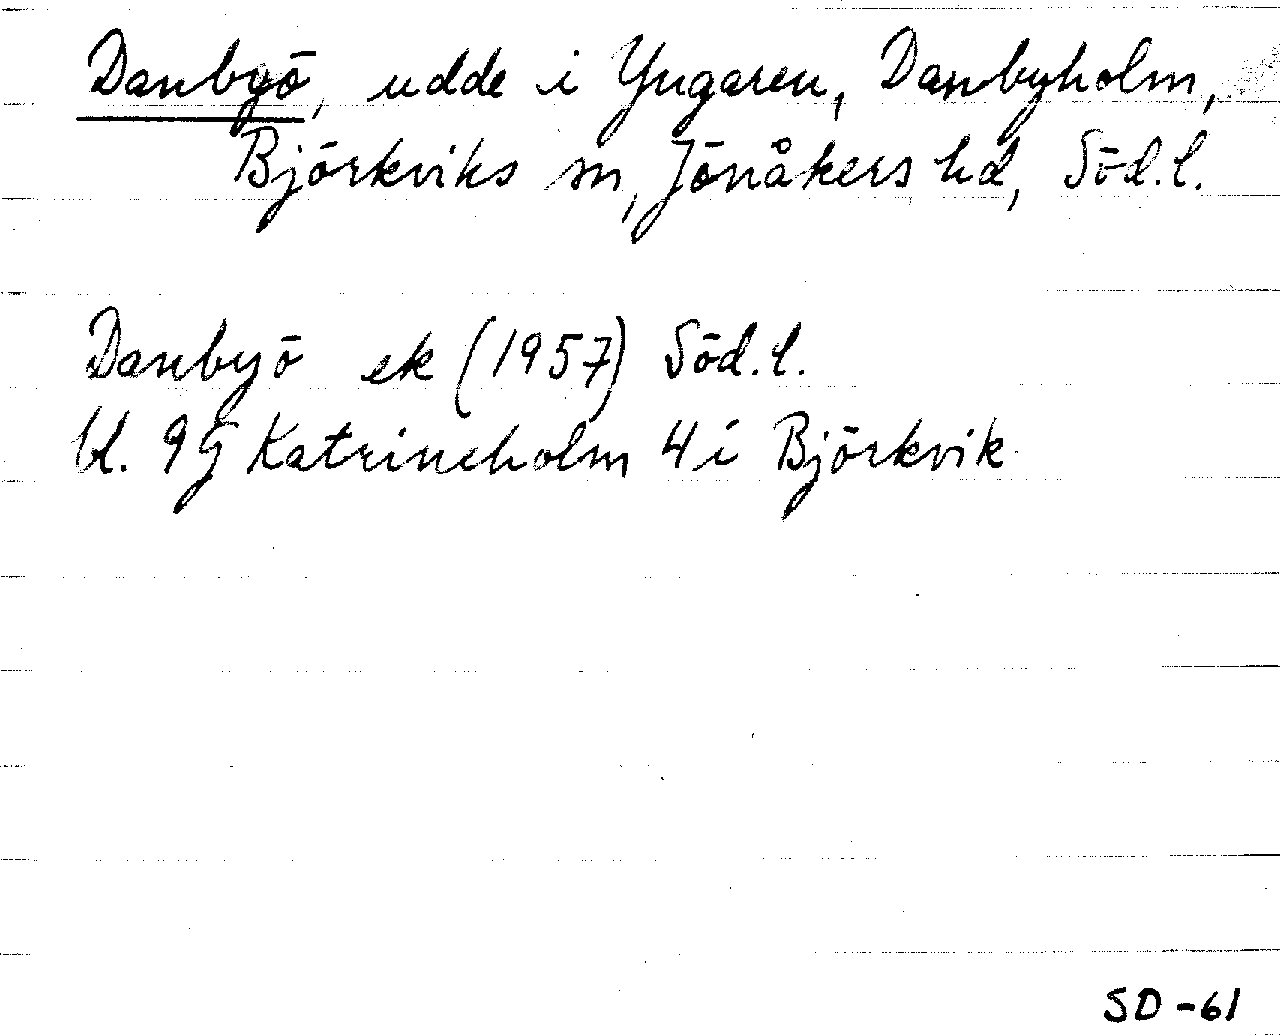 Danbyö, udde i Yngaren, Danbyholm,
Björkviks sn, Jönåkers hd, Söd.l.
Danbyö ek (1957) Söd.l.
bl. 9G Katrineholm 4i Björkvik
SD-61